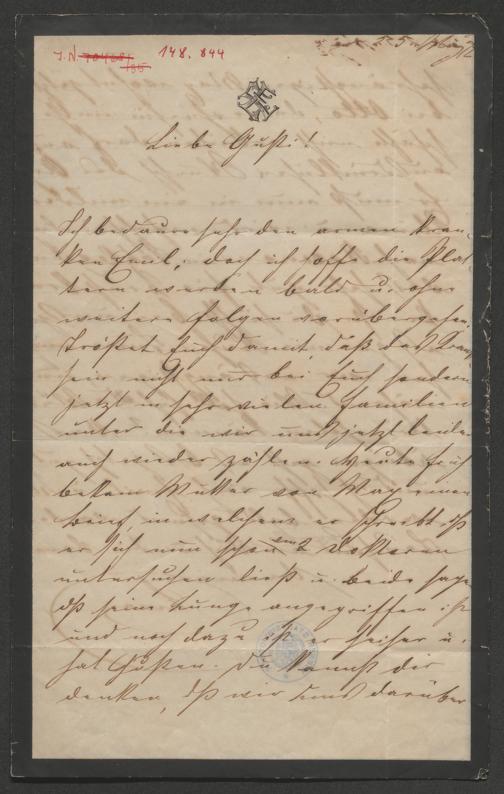 J.N. 70468/
/35 148.844
Liebe Gusti!
Ich bedaure sehr den armen kran-
ken Emil, doch ich hoffe die Blat-
tern werden bald u. ohne
weitere Folgen vorübergehen.
Tröstet Euch damit, daß das Krank-
sein nicht nur bei Euch sondern
jetzt in sehr vielen Familien
unter die wir uns jetzt leider
auch wieder zählen. Heute früh
bekam Mutter von Max einen
Brief, in welchem er schreibt dß
er sich nun schon von 2 Doktoren
untersuchen ließ u. beide sagen
dß seine Lunge angegriffen ist
und noch dazu ist er heiser u.
hat Husten. Du kannst dir
denken, dß wir uns darüber